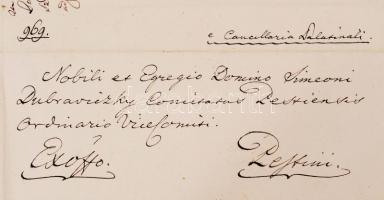 969.
e Cancellaria Palatinali.
Nobili et Egregio Domino Simeoni
Dubraviczky Comitatus Pestiensis
Ordinario ViceComiti.
Exoffo.
Pestini.